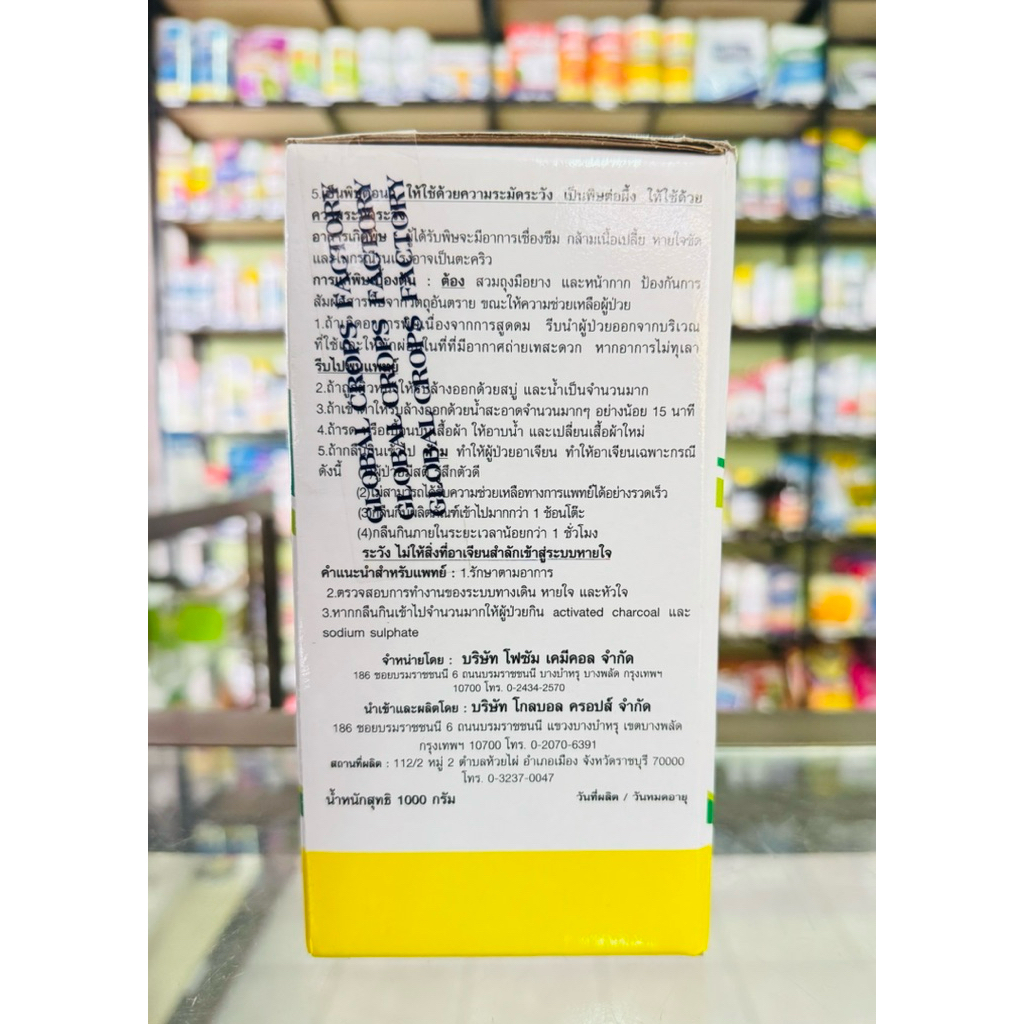 5.เป็นพิษต่อนก ให้ใช้ด้วยความระมัดระวัง เป็นพิษต่อผึ้ง ให้ใช้ด้วย
ความระมัดระวัง
อาการเกิดพิษ ผู้ได้รับพิษจะมีอาการเชื่องซึม กล้ามเนื้อเปลี้ย หายใจขัด
และในกรณีรุนแรงอาจเป็นตะคริว
การแก้พิษเบื้องต้น : ต้อง สวมถุงมือยาง และหน้ากาก ป้องกันการ
สัมผัสสารพิษจากวัตถุอันตราย ขณะให้ความช่วยเหลือผู้ป่วย
1.ถ้าเกิดอาการพิษเนื่องจากการสูดดม รีบนำผู้ป่วยออกจากบริเวณ
ที่ใช้และให้พักผ่อนในที่ที่มีอากาศถ่ายเทสะดวก หากอาการไม่ทุเลา
รีบไปพบแพทย์
2.ถ้าถูกผิวหนังให้รีบล้างออกด้วยสบู่ และน้ำเป็นจำนวนมาก
3.ถ้าเข้าตาให้รีบล้างออกด้วยน้ำสะอาดจำนวนมากๆ อย่างน้อย 15 นาที
4.ถ้ารด หรือเปื้อนบนเสื้อผ้า ให้อาบน้ำ และเปลี่ยนเสื้อผ้าใหม่
5.ถ้ากลืนกินเข้าไป ห้าม ทำให้ผู้ป่วยอาเจียน ทำให้อาเจียนเฉพาะกรณี
ดังนี้ ผู้ป่วยมีสติ รู้สึกตัวดี
(2)ไม่สามารถได้รับความช่วยเหลือทางการแพทย์ได้อย่างรวดเร็ว
(3)กลืนกินผลิตภัณฑ์เข้าไปมากกว่า 1 ช้อนโต๊ะ
(4)กลืนกินภายในระยะเวลาน้อยกว่า 1 ชั่วโมง
ระวัง ไม่ให้สิ่งที่อาเจียนสำลักเข้าสู่ระบบหายใจ
คำแนะนำสำหรับแพทย์ : 1.รักษาตามอาการ
2.ตรวจสอบการทำงานของระบบทางเดิน หายใจ และหัวใจ
3.หากกลืนกินเข้าไปจำนวนมากให้ผู้ป่วยกิน activated charcoal และ
sodium sulphate
จำหน่ายโดย : บริษัท โฟซัม เคมีคอล จำกัด
186 ซอยบรมราชชนนี 6 ถนนบรมราชชนนี บางบำหรุ บางพลัด กรุงเทพฯ
10700 โทร. 0-2434-2570
นำเข้าและผลิตโดย : บริษัท โกลบอล ครอปส์ จำกัด
186 ซอยบรมราชชนนี 6 ถนนบรมราชชนนี แขวงบางบำหรุ เขตบางพลัด
กรุงเทพฯ 10700 โทร. 0-2070-6391
สถานที่ผลิต : 112/2 หมู่ 2 ตำบลห้วยไผ่ อำเภอเมือง จังหวัดราชบุรี 70000
โทร. 0-3237-0047
น้ำหนักสุทธิ 1000 กรัม วันที่ผลิต / วันหมดอายุ
GLOBAL CROPS FACTORY
GLOBAL CROPS FACTORY
GLOBAL CROPS FACTORY